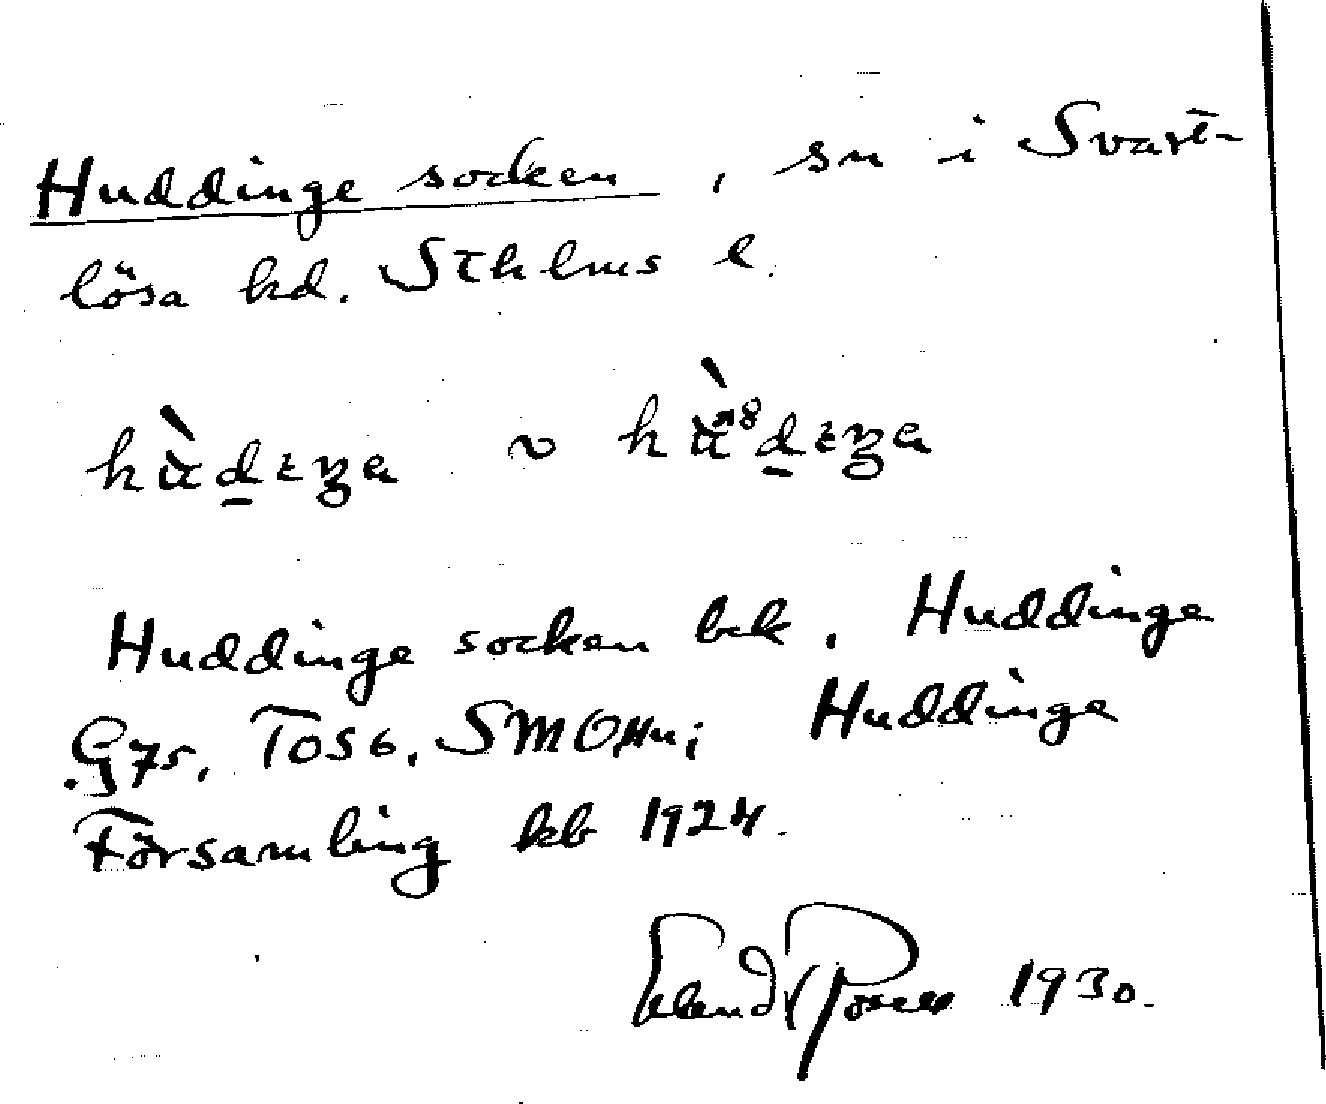 Huddinge socken, sn i Svart-
lösa hd. Sthlms l.
Huddinge socken bek. Huddinge
G75. TOS6. SMOHu; Huddinge
Församling kb 1924.
Erland Rosell 1930.